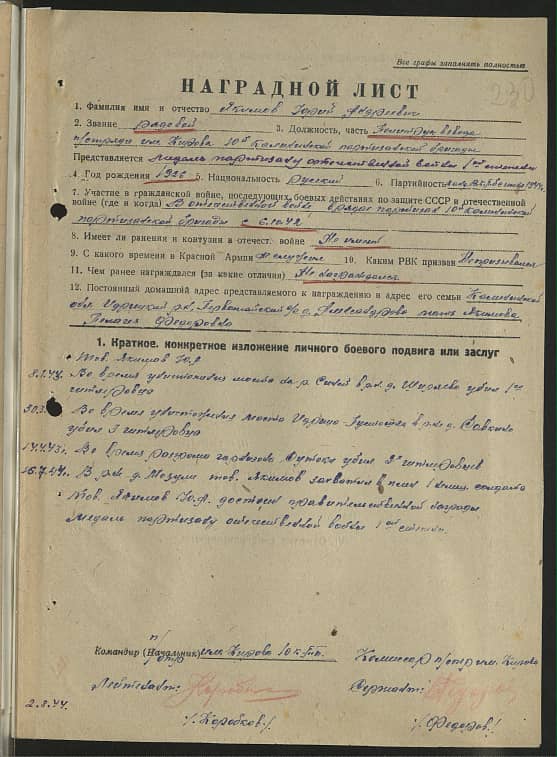 Все графы заполнять полностью
230
НАГРАДНОЙ ЛИСТ
1. Фамилия имя и отчество Якимов Юрий Андреевич
2. Звание рядовой 3. Должность, часть взвода
п/отряда им. Кирова 10й Калининской партизанской бригады
Представляется медаль партизану отечественной войны 1ой степени
4. Год рождения 1926 5. Национальность русский 6. Партийность
7. Участие в гражданской войне, последующих боевых действиях по защите СССР и отечественной
войне (где и когда) В отечественной войне в рядах партизан 10й Калининской
партизанской бригады с 6.10.42
8. Имеет ли ранения и контузии в отечест. войне Не имеет
9. С какого времени в Красной Армии Не служил 10. Каким РВК призван Не призывался
11. Чем ранее награждался (за какие отличия) Не награждался
12. Постоянный домашний адрес представляемого к награждению и адрес его семьи Калининской
обл. Идрицкий р-н, Первомайский с/с, д. Александрово мать Якимова
Пелагея Федоровна
1. Краткое, конкретное изложение личного боевого подвига или заслуг
Тов. Якимов Ю.А
Во время уничтожения моста на р. в р-не д. убил 1го
гитлеровца
Во время уничтожения моста Идрица Пустошка в р-не д. Савкино
убил 3 гитлеровца
Во время разгрома гарнизона убил 2х гитлеровцев
В р-не д. Мозули тов. Якимов захватил в плен 1 немец. солдата
Тов. Якимов Ю.А. достоин правительственной награды
Медаль партизану отечественной войны 1ой степени.
Командир (Начальник) п/отр им. Кирова 10 к.п.б. Комиссар п/отр им. Кирова
Лейтенант: Сержант:
2.8.44.
/Коробков/ /Федоров/